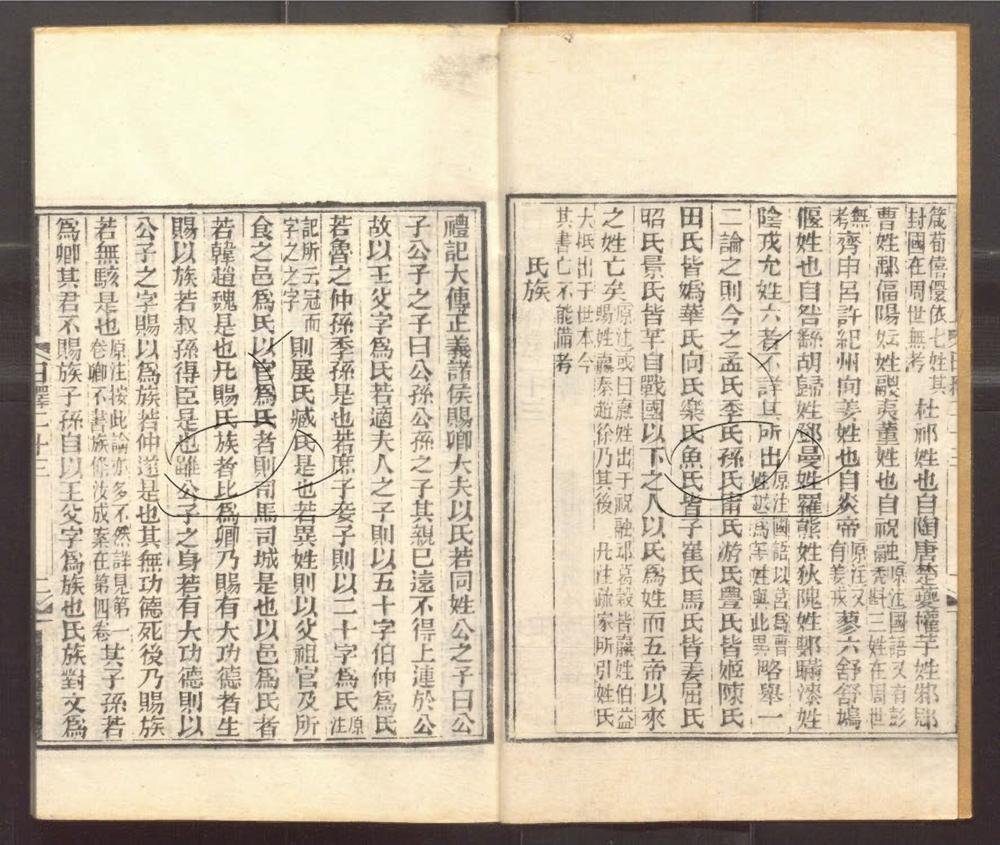 箴荀僖儇依七姓其封國在周世無考杜祁姓也自陶唐楚夔權芈姓邾郳
曹姓鄅偪陽妘姓鬷夷董姓也自祝融原注國語又有彭禿斟三姓在周世
無考齊申呂許紀州向姜姓也自炎帝原注又有姜戎蓼六舒舒鳩
偃姓也自咎繇胡歸姓鄧曼姓羅熊姓狄隗姓鄋瞞漆姓
陰戎允姓六者不詳其所出原注國語以莒爲曹姓與此異略舉一
二論之則今之孟氏季氏孫氏甯氏游氏豐氏皆姬陳氏
田氏皆嬀華氏向氏樂氏魚氏皆子崔氏馬氏皆姜屈氏
昭氏景氏皆芈自戰國以下之人以氏爲姓而五帝以來
之姓亡矣原注或曰嬴姓出于祝融邳葛穀皆嬴姓伯益賜姓嬴秦趙徐乃其後凡注疏家所引姓氏
大抵出于世本今其書亡不能備考
氏族
禮記大傳正義諸侯賜卿大夫以氏若同姓公之子曰公
子公子之子曰公孫公孫之子其親已遠不得上連於公
故以王父字爲氏若適夫人之子則以五十字伯仲爲氏
若魯之仲孫季孫是也若庶子妾子則以二十字爲氏原注
記所云冠而字之之字則展氏臧氏是也若異姓則以父祖官及所
食之邑爲氏以官爲氏者則司馬司城是也以邑爲氏者
若韓趙魏是也凡賜氏族者比爲卿乃賜有大功德者生
賜以族若叔孫得臣是也雖公子之身若有大功德則以
公子之字賜以爲族若仲遂是也其無功德死後乃賜族
若無駭是也原注按此論亦多不然詳見第一卷卿不書族條汝成案在第四卷其子孫若
爲卿其君不賜族子孫自以王父字爲族也氏族對文爲